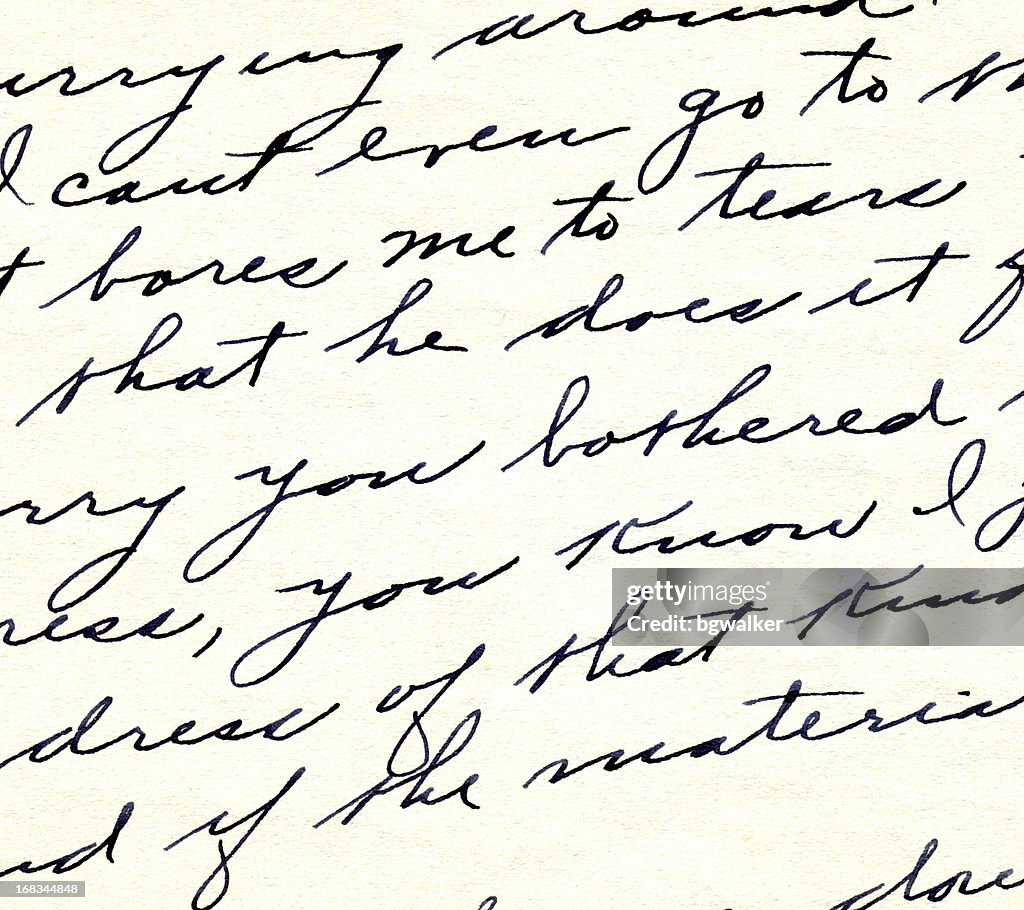 urrying around
I cant even go to
t bores me to tears
that he does it
rry you bothered
ress, you know I
dress of that kind
nd if the materia
gettyimages®
bgwalker
168344848